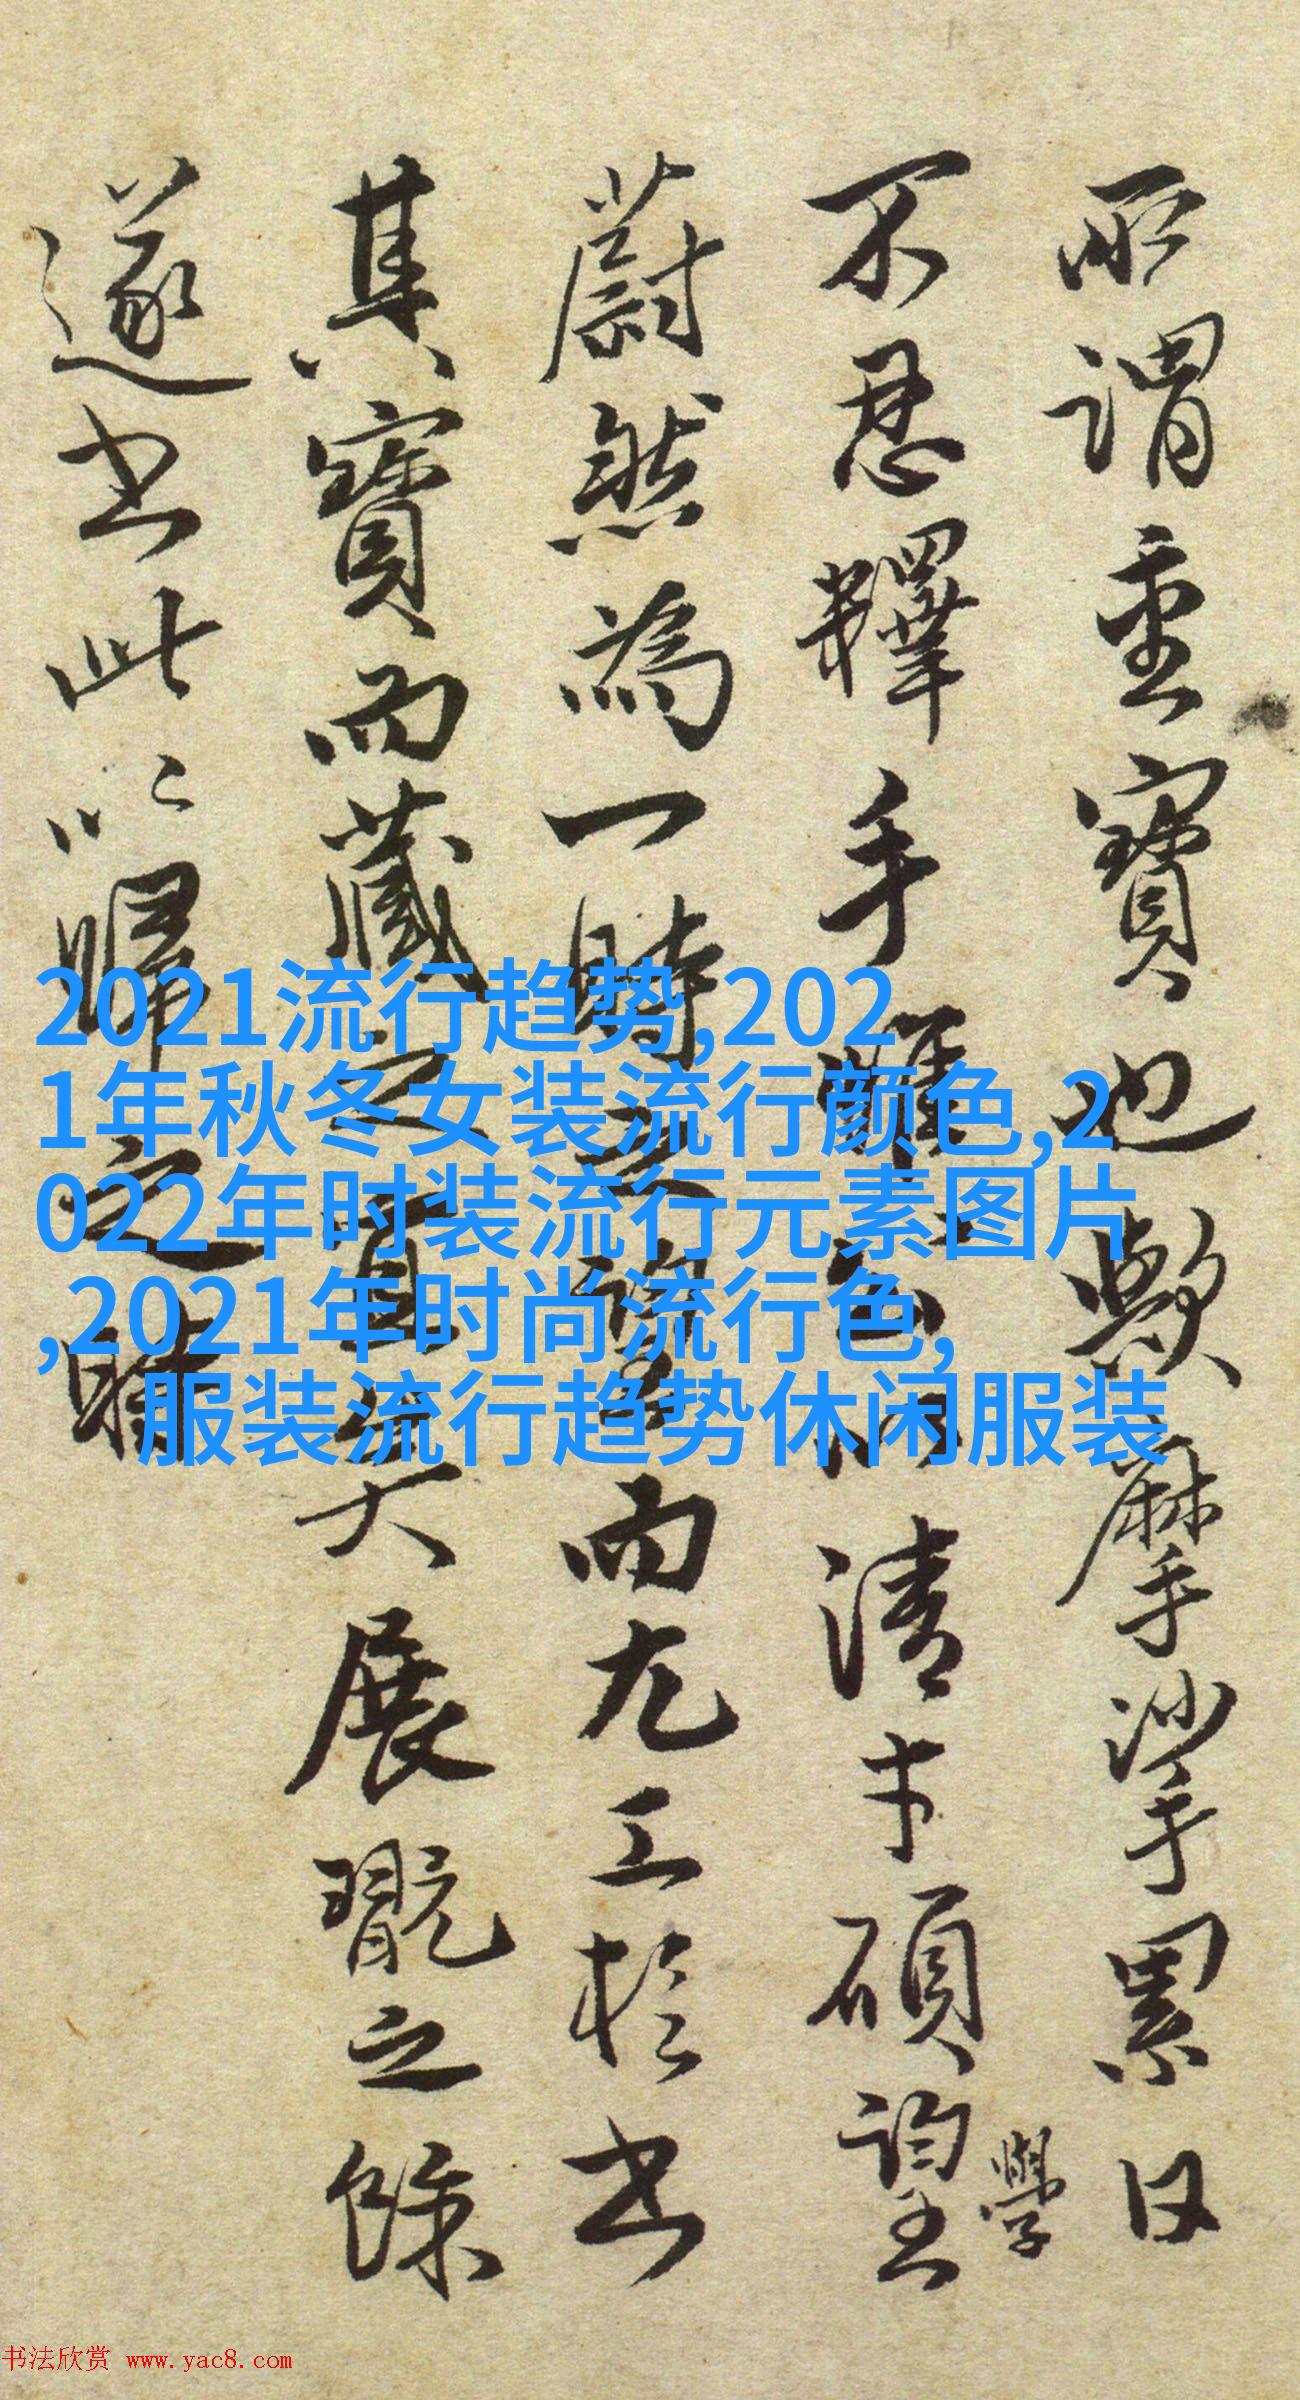 所謂重寶也歎摩挲累日
不忍釋手 清才碩望
學
蔚然為一時之 而尤工於書
其寶而藏之宜矣展翫之餘
遂書此以歸之時
2021流行趋势,202
1年秋冬女装流行颜色,2
022年时装流行元素图片
,2021年时尚流行色,
服装流行趋势休闲服装
书法欣赏 www.yac8.com